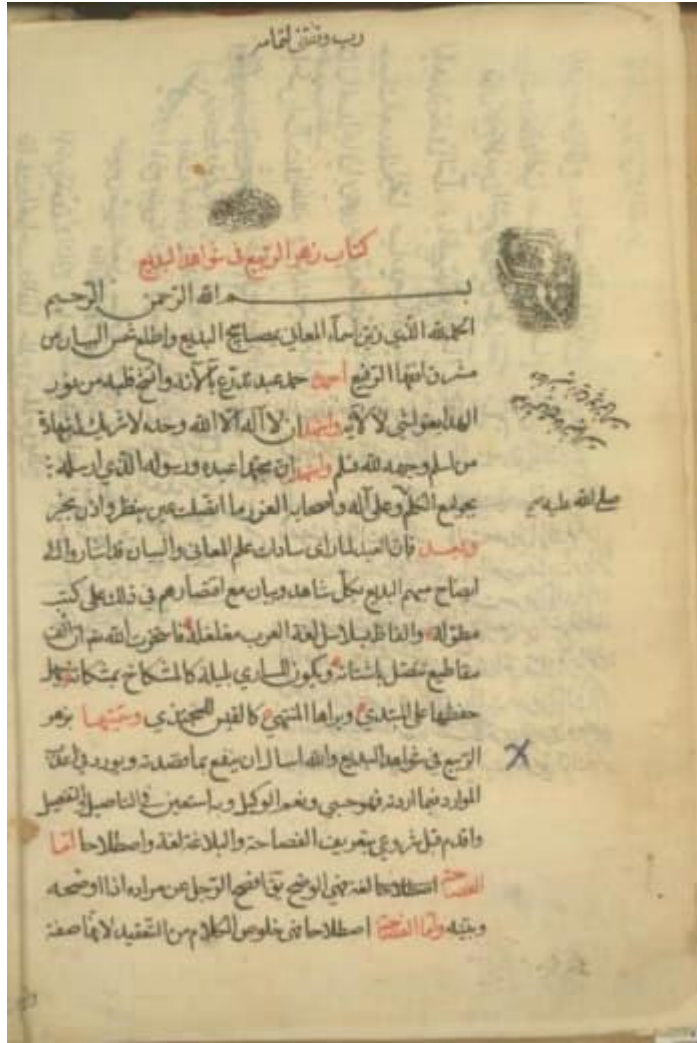 رب وفقني لتمامه
كتاب زهر الربيع في شواهد البديع
بسم الله الرحمن الرحيم
الحمد لله الذي زين اسماء المعاني بمصابيح البديع واطلع شمس البيان من
مشرق افقها الرفيع احمده حمد عبد تدرع بآلائه واتضح قلبه من نور
الهدا لا اله الا الله وحده لا شريك له شهادة
من اسلم وجهه لله فسلم واشهد ان محمدا عبده ورسوله الذي ارسله
بجوامع الكلم وعلى آله واصحاب الغرر ما انقبلت عين بنظر واذن بخبر
صلى الله عليه
وبعد فان العبد لما راى سادات علم المعاني والبيان قد اشاروا الى
ايضاح مبهم البديع بكل شاهد وبيان مع اقتصارهم في ذلك على كتب
مطولة والفاظ بسلاسل لغة العرب مغلغلة فاستخرت الله ان
مقاطيع ويكون الساري بليله كالمشكاة
حفظها على المبتدي ويراها المنتهي كالقبس وسميتها بزهر
الربيع في شواهد البديع والله اسال ان ينفع بما قصدته ويورد في اعذب
الموارد فيما اردته فهو حسبي ونعم الوكيل وبه استعين في التفصيل
واقدم قبل شروعي بتعريف الفصاحة والبلاغة لغة واصطلاحا اما
الفصاحة لغة فهي الوضح يق افصح الرجل عن مراده اذا اوضحه
وبينه واما الفصاحة اصطلاحا فهي خلوص الكلام من التعقيد لانها صفة